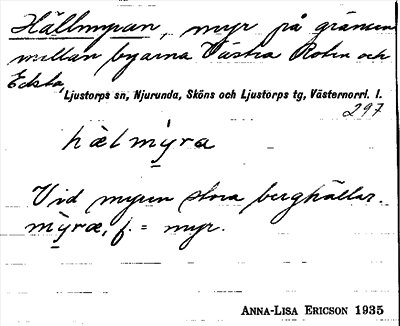 Hällmyran, myr på gränsen
mellan byarna Västra Roten och
Edsta,
Ljustorps sn, Njurunda, Sköns och Ljustorps tg, Västernorrl. l.
297
hælmỳra
Vid myren stora berghällar.
mỳræ, f. = myr.
ANNA-LISA ERICSON 1935